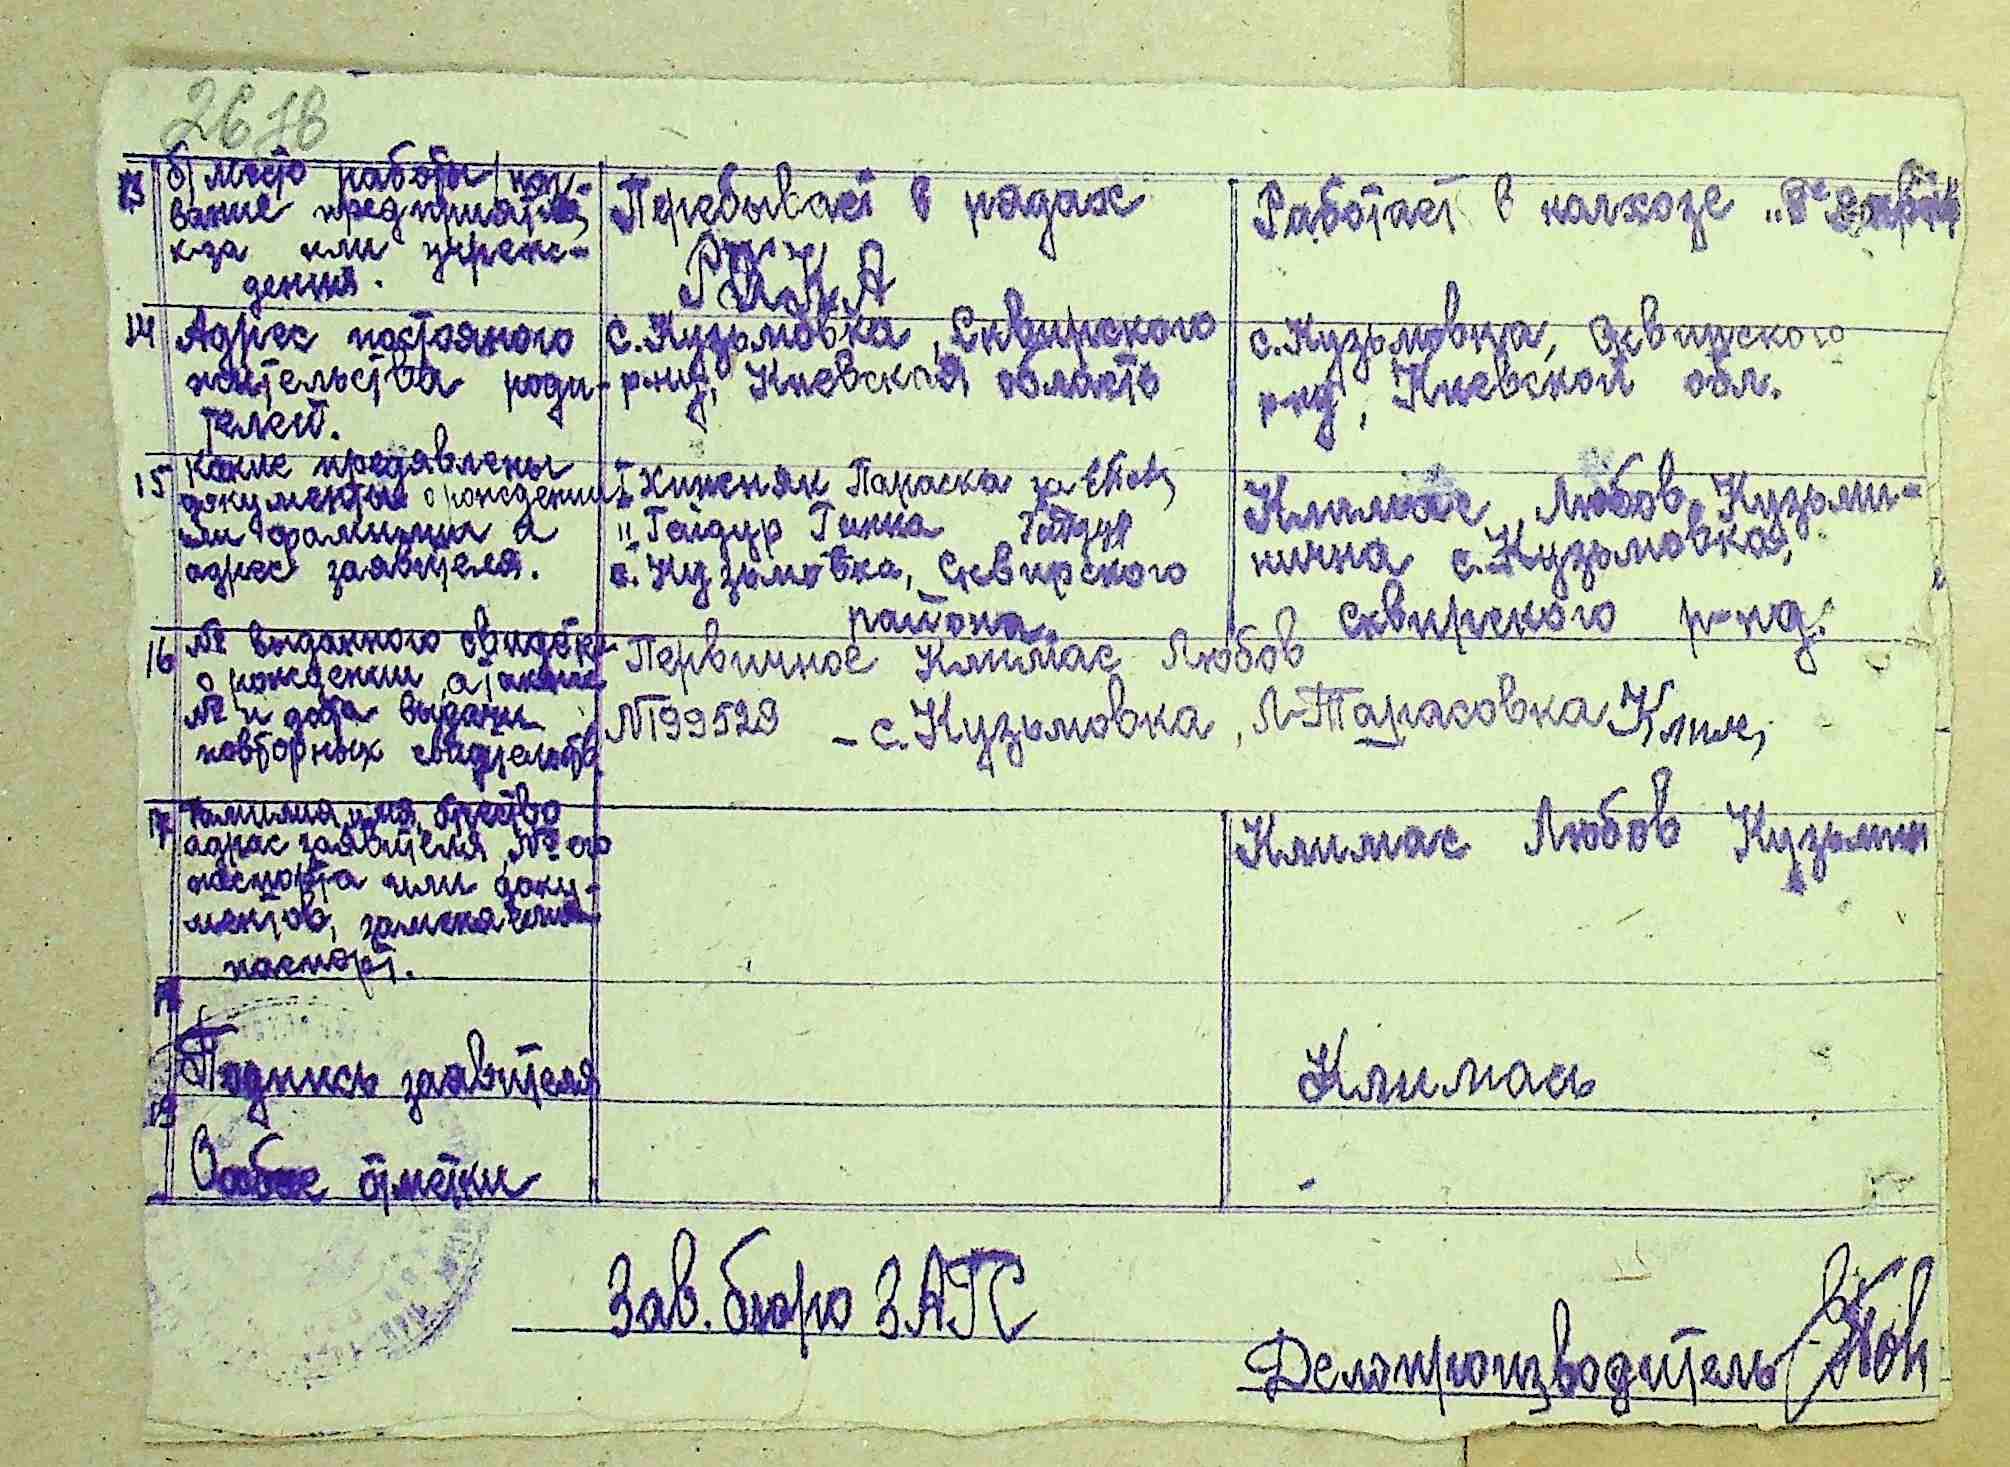 26
13
б) место работы, наз-
вание предприятия,
к-за или учреж-
дения.
Перебывает в рядах
РККА
Работает в колхозе
14
Адрес постояного
жительства роди-
телей.
с. Кузьмовка, Сквирского
р-ну, Киевская область
с. Кузьмовка, Сквирского
р-ну, Киевской обл.
15
Какие предявлены
документы о рождении
или фамилии и
адрес заявителя.
I Хиженяк Параска за
II Гайдур Ганка Гайдур
с. Кузьмовка, Сквирского
района.
Климас Любов Кузьми-
нична с. Кузьмовка,
Сквирского р-на.
16
№ выданного свидет.
о рождении, а также
№ и дата выдачи
повторных свидетельств
Первичное Климас Любов
№199529 – с. Кузьмовка, Л-Тарасовка Клим
17
Фамилия, имя, отчество
адрас заявителя, № его
паспорта или доку-
ментов, заменяющих
паспорт.
Климас Любов Кузьмин
18
Подпись заявителя
Климась
19
Особые отметки
-
Зав. бюро ЗАГС
Делопроизводитель